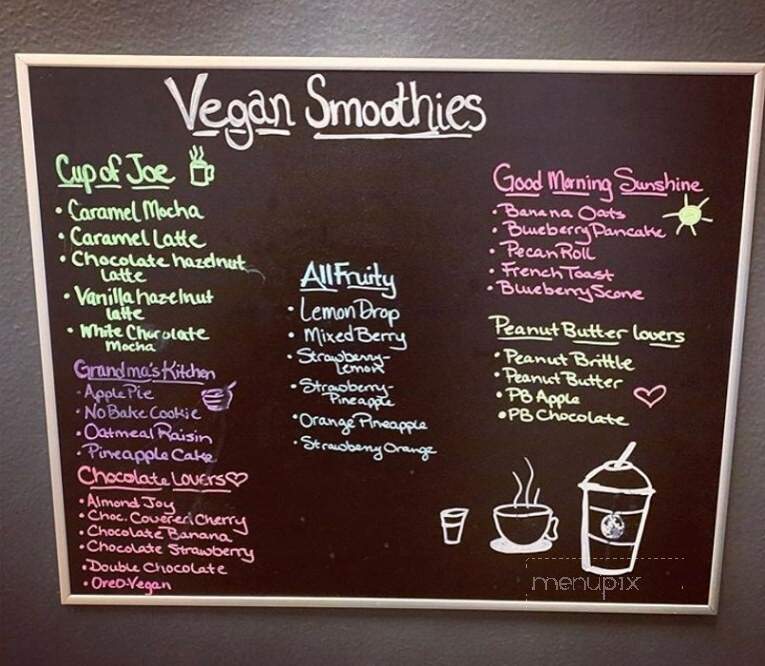 Vegan Smoothies
Cup of Joe
• Caramel Mocha
• Caramel Latte
• Chocolate hazelnut
latte
• Vanilla hazelnut
latte
• White Chocolate
Mocha
Grandma's Kitchen
• Apple Pie
• No Bake Cookie
• Oatmeal Raisin
• Pineapple Cake
Chocolate Lovers
• Almond Joy
• Choc. Covered Cherry
• Chocolate Banana
• Chocolate Strawberry
• Double Chocolate
• Oreo-Vegan
All Fruity
• Lemon Drop
• Mixed Berry
• Strawberry-
Lemon
• Strawberry-
Pineapple
• Orange Pineapple
• Strawberry Orange
Good Morning Sunshine
• Banana Oats
• Blueberry Pancake
• Pecan Roll
• French Toast
• Blueberry Scone
Peanut Butter lovers
• Peanut Brittle
• Peanut Butter
• PB Apple
• PB Chocolate
menupix